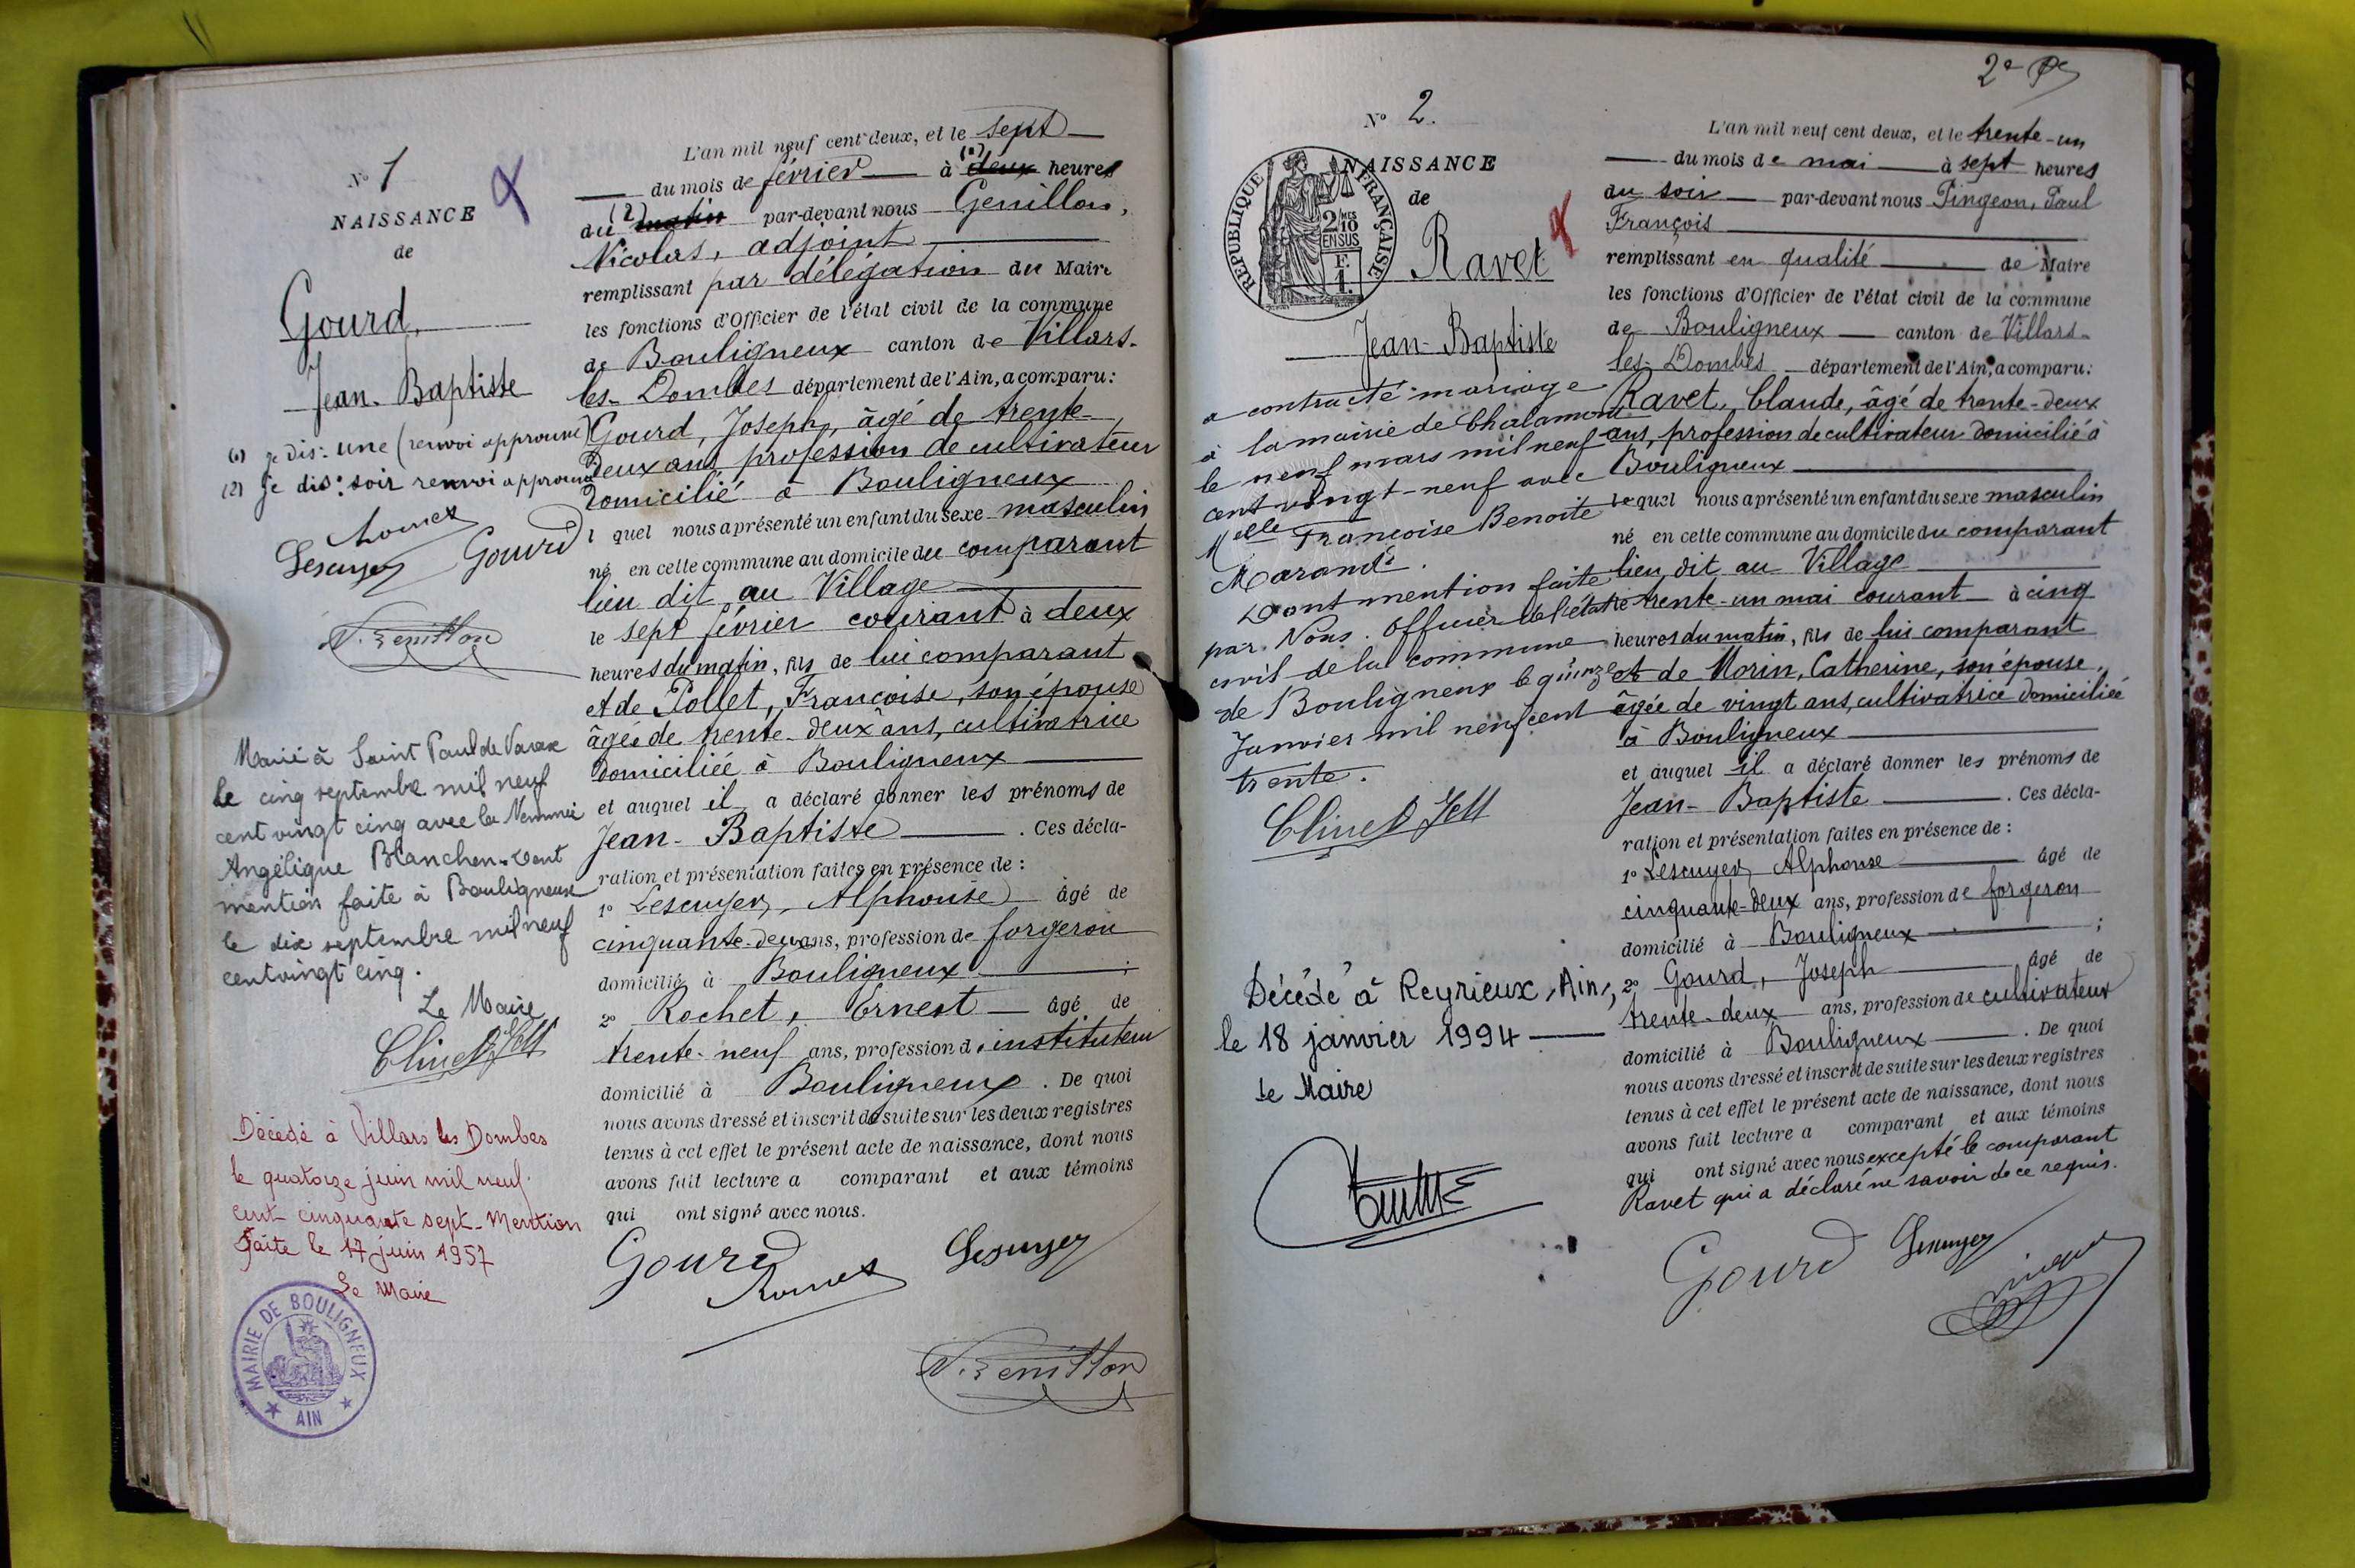 N° 1
NAISSANCE
de
Gourd,
Jean-Baptiste
(1) je dis: une (renvoi approuvé)
(2) je dis: soir renvoi approuvé
Lescuyer Gourd
N. Genillon
Marié à Saint Paul de Varax
le cinq septembre mil neuf
cent vingt cinq avec
Angélique Blanchon. Dont
mention faite à Bouligneux
le dix septembre mil neuf
cent vingt cinq.
Le Maire
Décédé à Villars les Dombes
le quatorze juin mil neuf
cent cinquante sept. Mention
faite le 17 juin 1957
Le Maire
MAIRIE DE BOULIGNEUX
AIN
L'an mil neuf cent deux, et le sept
du mois de février à (1) deux heures
du (2) matin par-devant nous Genillon,
Nicolas, adjoint
remplissant par délégation du Maire
les fonctions d'Officier de l'état civil de la commune
de Bouligneux canton de Villars-
les-Dombes département de l'Ain, a comparu:
Gourd, Joseph, âgé de trente-
deux ans, profession de cultivateur
domicilié à Bouligneux
l quel nous a présenté un enfant du sexe masculin
né en cette commune au domicile du comparant
lieu dit au Village
le sept février courant à deux
heures du matin, fils de lui comparant
et de Pollet, Françoise, son épouse
âgée de trente-deux ans, cultivatrice
domiciliée à Bouligneux
et auquel il a déclaré donner les prénoms de
Jean-Baptiste. Ces décla-
ration et présentation faites en présence de:
1° Lescuyer, Alphonse âgé de
cinquante-deux ans, profession de forgeron
domicilié à Bouligneux;
2° Rochet, Ernest âgé de
trente-neuf ans, profession d'instituteur
domicilié à Bouligneux. De quoi
nous avons dressé et inscrit de suite sur les deux registres
tenus à cet effet le présent acte de naissance, dont nous
avons fait lecture a comparant et aux témoins
qui ont signé avec nous.
Gourd Lescuyer
N. Genillon
2e
N° 2.
NAISSANCE
de
REPUBLIQUE FRANÇAISE
2/10 MES
EN SUS
Ravet
Jean-Baptiste
a contracté mariage
à la mairie de Chalamont
le neuf mars mil neuf
cent vingt-neuf avec
Melle Françoise Benoite
Marandi.
Dont mention faite
par Nous. Officier de l'état
civil de la commune
de Bouligneux le quinze
Janvier mil neuf cent
trente.
Décédé à Reyrieux, Ain,
le 18 janvier 1994
Le Maire
L'an mil neuf cent deux, et le trente-un
du mois de mai à sept heures
du soir par-devant nous Pingeon, Paul
François
remplissant en qualité de Maire
les fonctions d'Officier de l'état civil de la commune
de Bouligneux canton de Villars-
les-Dombes département de l'Ain, a comparu:
Ravet, Claude, âgé de trente-deux
ans, profession de cultivateur domicilié à
Bouligneux
lequel nous a présenté un enfant du sexe masculin
né en cette commune au domicile du comparant
lieu dit au Village
le trente-un mai courant à cinq
heures du matin, fils de lui comparant
et de Morin, Catherine, son épouse,
âgée de vingt ans, cultivatrice domiciliée
à Bouligneux
et auquel il a déclaré donner les prénoms de
Jean-Baptiste. Ces décla-
ration et présentation faites en présence de:
1° Lescuyer, Alphonse âgé de
cinquante-deux ans, profession de forgeron
domicilié à Bouligneux;
2° Gourd, Joseph âgé de
trente-deux ans, profession de cultivateur
domicilié à Bouligneux. De quoi
nous avons dressé et inscrit de suite sur les deux registres
tenus à cet effet le présent acte de naissance, dont nous
avons fait lecture a comparant et aux témoins
qui ont signé avec nous excepté le comparant
Ravet qui a déclaré ne savoir de ce requis.
Gourd Lescuyer